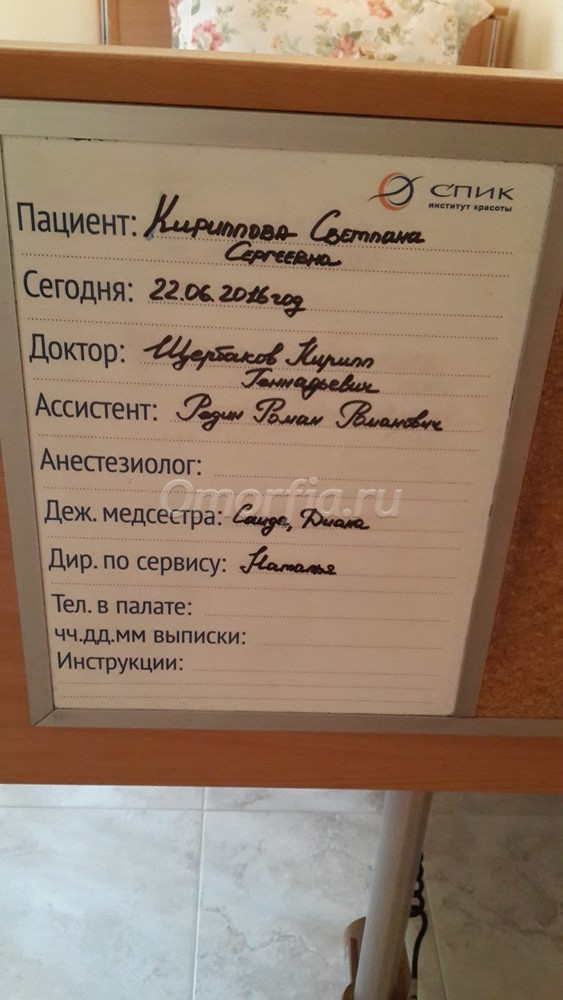 СПИК
институт красоты
Пациент: Кириллова Светлана
Сергеевна
Сегодня: 22.06.2016год
Доктор: Щербаков Кирилл
Геннадьевич
Ассистент: Редин Роман Романович
Анестезиолог:
Omorfia.ru
Деж. медсестра: Саида, Диана
Дир. по сервису: Наталья
Тел. в палате:
чч.дд.мм выписки:
Инструкции: